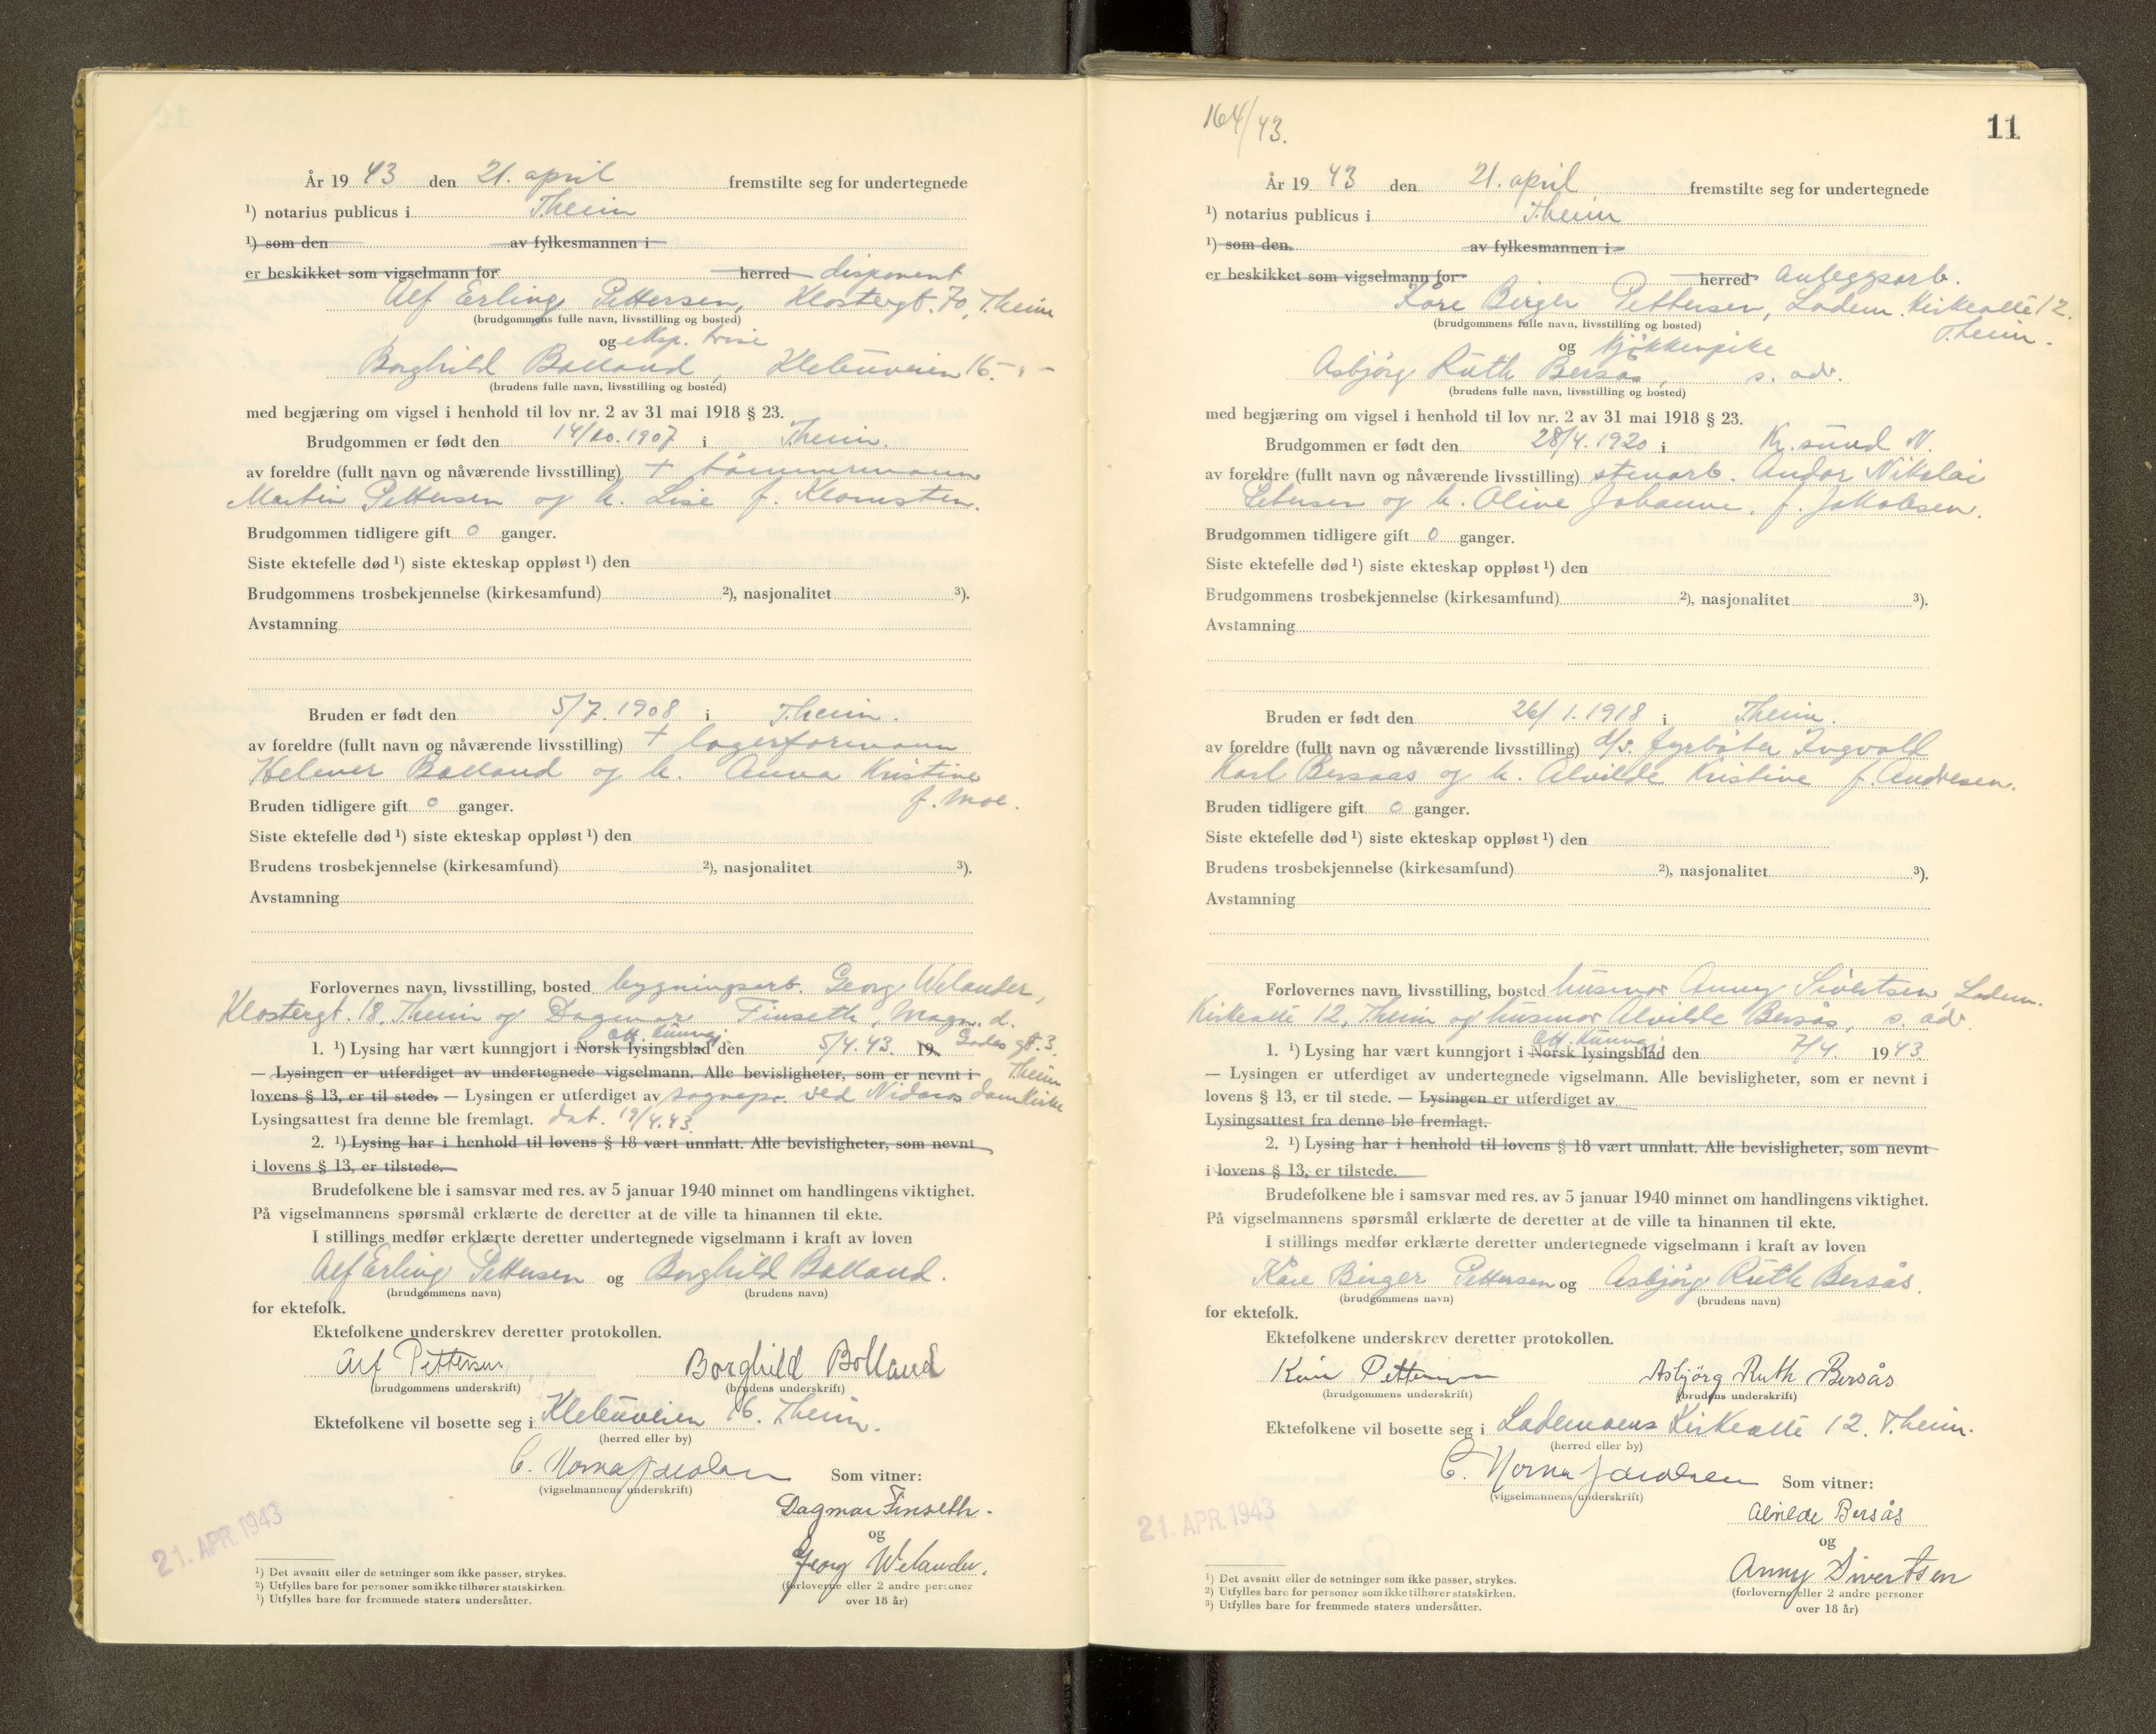 År 19 43 den 21. april fremstilte seg for undertegnede
¹) notarius publicus i T.heim
¹) som den av fylkesmannen i
er beskikket som vigselmann for herred disponent
Alf Erling Pettersen, Klostergt. 70, T.heim
(brudgommens fulle navn, livsstilling og bosted)
og eksp. trise
Borghild Bolland, Klebuveien 16. - " -
(brudens fulle navn, livsstilling og bosted)
med begjæring om vigsel i henhold til lov nr. 2 av 31 mai 1918 § 23.
Brudgommen er født den 14/10. 1907 i T.heim.
av foreldre (fullt navn og nåværende livsstilling) + tømmermann
Martin Pettersen og h. Lise f. Klomsten.
Brudgommen tidligere gift 0 ganger.
Siste ektefelle død ¹) siste ekteskap oppløst ¹) den
Brudgommens trosbekjennelse (kirkesamfund) ²), nasjonalitet ³).
Avstamning
Bruden er født den 5/7. 1908 i T.heim.
av foreldre (fullt navn og nåværende livsstilling) + lagerformann
Helmer Bolland og h. Anna Kristine
f. Moe.
Bruden tidligere gift 0 ganger.
Siste ektefelle død ¹) siste ekteskap oppløst ¹) den
Brudens trosbekjennelse (kirkesamfund) ²), nasjonalitet ³).
Avstamning
Forlovernes navn, livsstilling, bosted bygningsarb. Georg Welander,
Klostergt. 18, T.heim og Dagmar Finseth, Magn. d.
Godes gt. 3.
T.heim
off. kunngj.
1. ¹) Lysing har vært kunngjort i Norsk lysingsblad den 5/4. 43. 19
— Lysingen er utferdiget av undertegnede vigselmann. Alle bevisligheter, som er nevnt i
lovens § 13, er til stede. — Lysingen er utferdiget av sognepr. ved Nidaros domkirke
Lysingsattest fra denne ble fremlagt. dat. 19/4.43.
2. ¹) Lysing har i henhold til lovens § 18 vært unnlatt. Alle bevisligheter, som nevnt
i lovens § 13, er tilstede.
Brudefolkene ble i samsvar med res. av 5 januar 1940 minnet om handlingens viktighet.
På vigselmannens spørsmål erklærte de deretter at de ville ta hinannen til ekte.
I stillings medfør erklærte deretter undertegnede vigselmann i kraft av loven
Alf Erling Pettersen og Borghild Bolland.
(brudgommens navn) (brudens navn)
for ektefolk.
Ektefolkene underskrev deretter protokollen.
Alf Pettersen Borghild Bolland
(brudgommens underskrift) (brudens underskrift)
Ektefolkene vil bosette seg i Klebuveien 16. T.heim.
(herred eller by)
Som vitner:
(vigselmannens underskrift)
Dagmar Finseth.
og
Georg Welander.
(forloverne eller 2 andre personer
over 18 år)
21. APR. 1943
¹) Det avsnitt eller de setninger som ikke passer, strykes.
²) Utfylles bare for personer som ikke tilhører statskirken.
³) Utfylles bare for fremmede staters undersåtter.
164/43.
11
År 19 43 den 21. april fremstilte seg for undertegnede
¹) notarius publicus i T.heim
¹) som den av fylkesmannen i
er beskikket som vigselmann for herred anleggsarb.
Kåre Birger Pettersen, Ladem. Kirkeallé 12.
T.heim.
(brudgommens fulle navn, livsstilling og bosted)
og kjøkkenpike
Asbjörg Ruth Bersås, s. adr.
(brudens fulle navn, livsstilling og bosted)
med begjæring om vigsel i henhold til lov nr. 2 av 31 mai 1918 § 23.
Brudgommen er født den 28/4. 1920 i Kr.sund N.
av foreldre (fullt navn og nåværende livsstilling) stenarb. Andor Nikolai
Petersen og h. Oline Johanne, f. Jakobsen.
Brudgommen tidligere gift 0 ganger.
Siste ektefelle død ¹) siste ekteskap oppløst ¹) den
Brudgommens trosbekjennelse (kirkesamfund) ²), nasjonalitet ³).
Avstamning
Bruden er født den 26/1. 1918 i T.heim.
av foreldre (fullt navn og nåværende livsstilling) d/s. fyrbøter Ingvald
Karl Bersaas og h. Alvilde Kristine f. Andresen.
Bruden tidligere gift 0 ganger.
Siste ektefelle død ¹) siste ekteskap oppløst ¹) den
Brudens trosbekjennelse (kirkesamfund) ²), nasjonalitet ³).
Avstamning
Forlovernes navn, livsstilling, bosted husmor Anny Sivertsen, Ladem.
Kirkeallé 12, T.heim og husmor Alvilde Bersås, s. adr.
off. kunngj.
1. ¹) Lysing har vært kunngjort i Norsk lysingsblad den 7/4. 19 43.
— Lysingen er utferdiget av undertegnede vigselmann. Alle bevisligheter, som er nevnt i
lovens § 13, er til stede. — Lysingen er utferdiget av
Lysingsattest fra denne ble fremlagt.
2. ¹) Lysing har i henhold til lovens § 18 vært unnlatt. Alle bevisligheter, som nevnt
i lovens § 13, er tilstede.
Brudefolkene ble i samsvar med res. av 5 januar 1940 minnet om handlingens viktighet.
På vigselmannens spørsmål erklærte de deretter at de ville ta hinannen til ekte.
I stillings medfør erklærte deretter undertegnede vigselmann i kraft av loven
Kåre Birger Pettersen og Asbjörg Ruth Bersås.
(brudgommens navn) (brudens navn)
for ektefolk.
Ektefolkene underskrev deretter protokollen.
Kåre Pettersen Asbjörg Ruth Bersås
(brudgommens underskrift) (brudens underskrift)
Ektefolkene vil bosette seg i Lademoens Kirkeallé 12. T.heim.
(herred eller by)
Som vitner:
(vigselmannens underskrift)
Alvilde Bersås
og
Anny Sivertsen
(forloverne eller 2 andre personer
over 18 år)
21. APR. 1943
¹) Det avsnitt eller de setninger som ikke passer, strykes.
²) Utfylles bare for personer som ikke tilhører statskirken.
³) Utfylles bare for fremmede staters undersåtter.